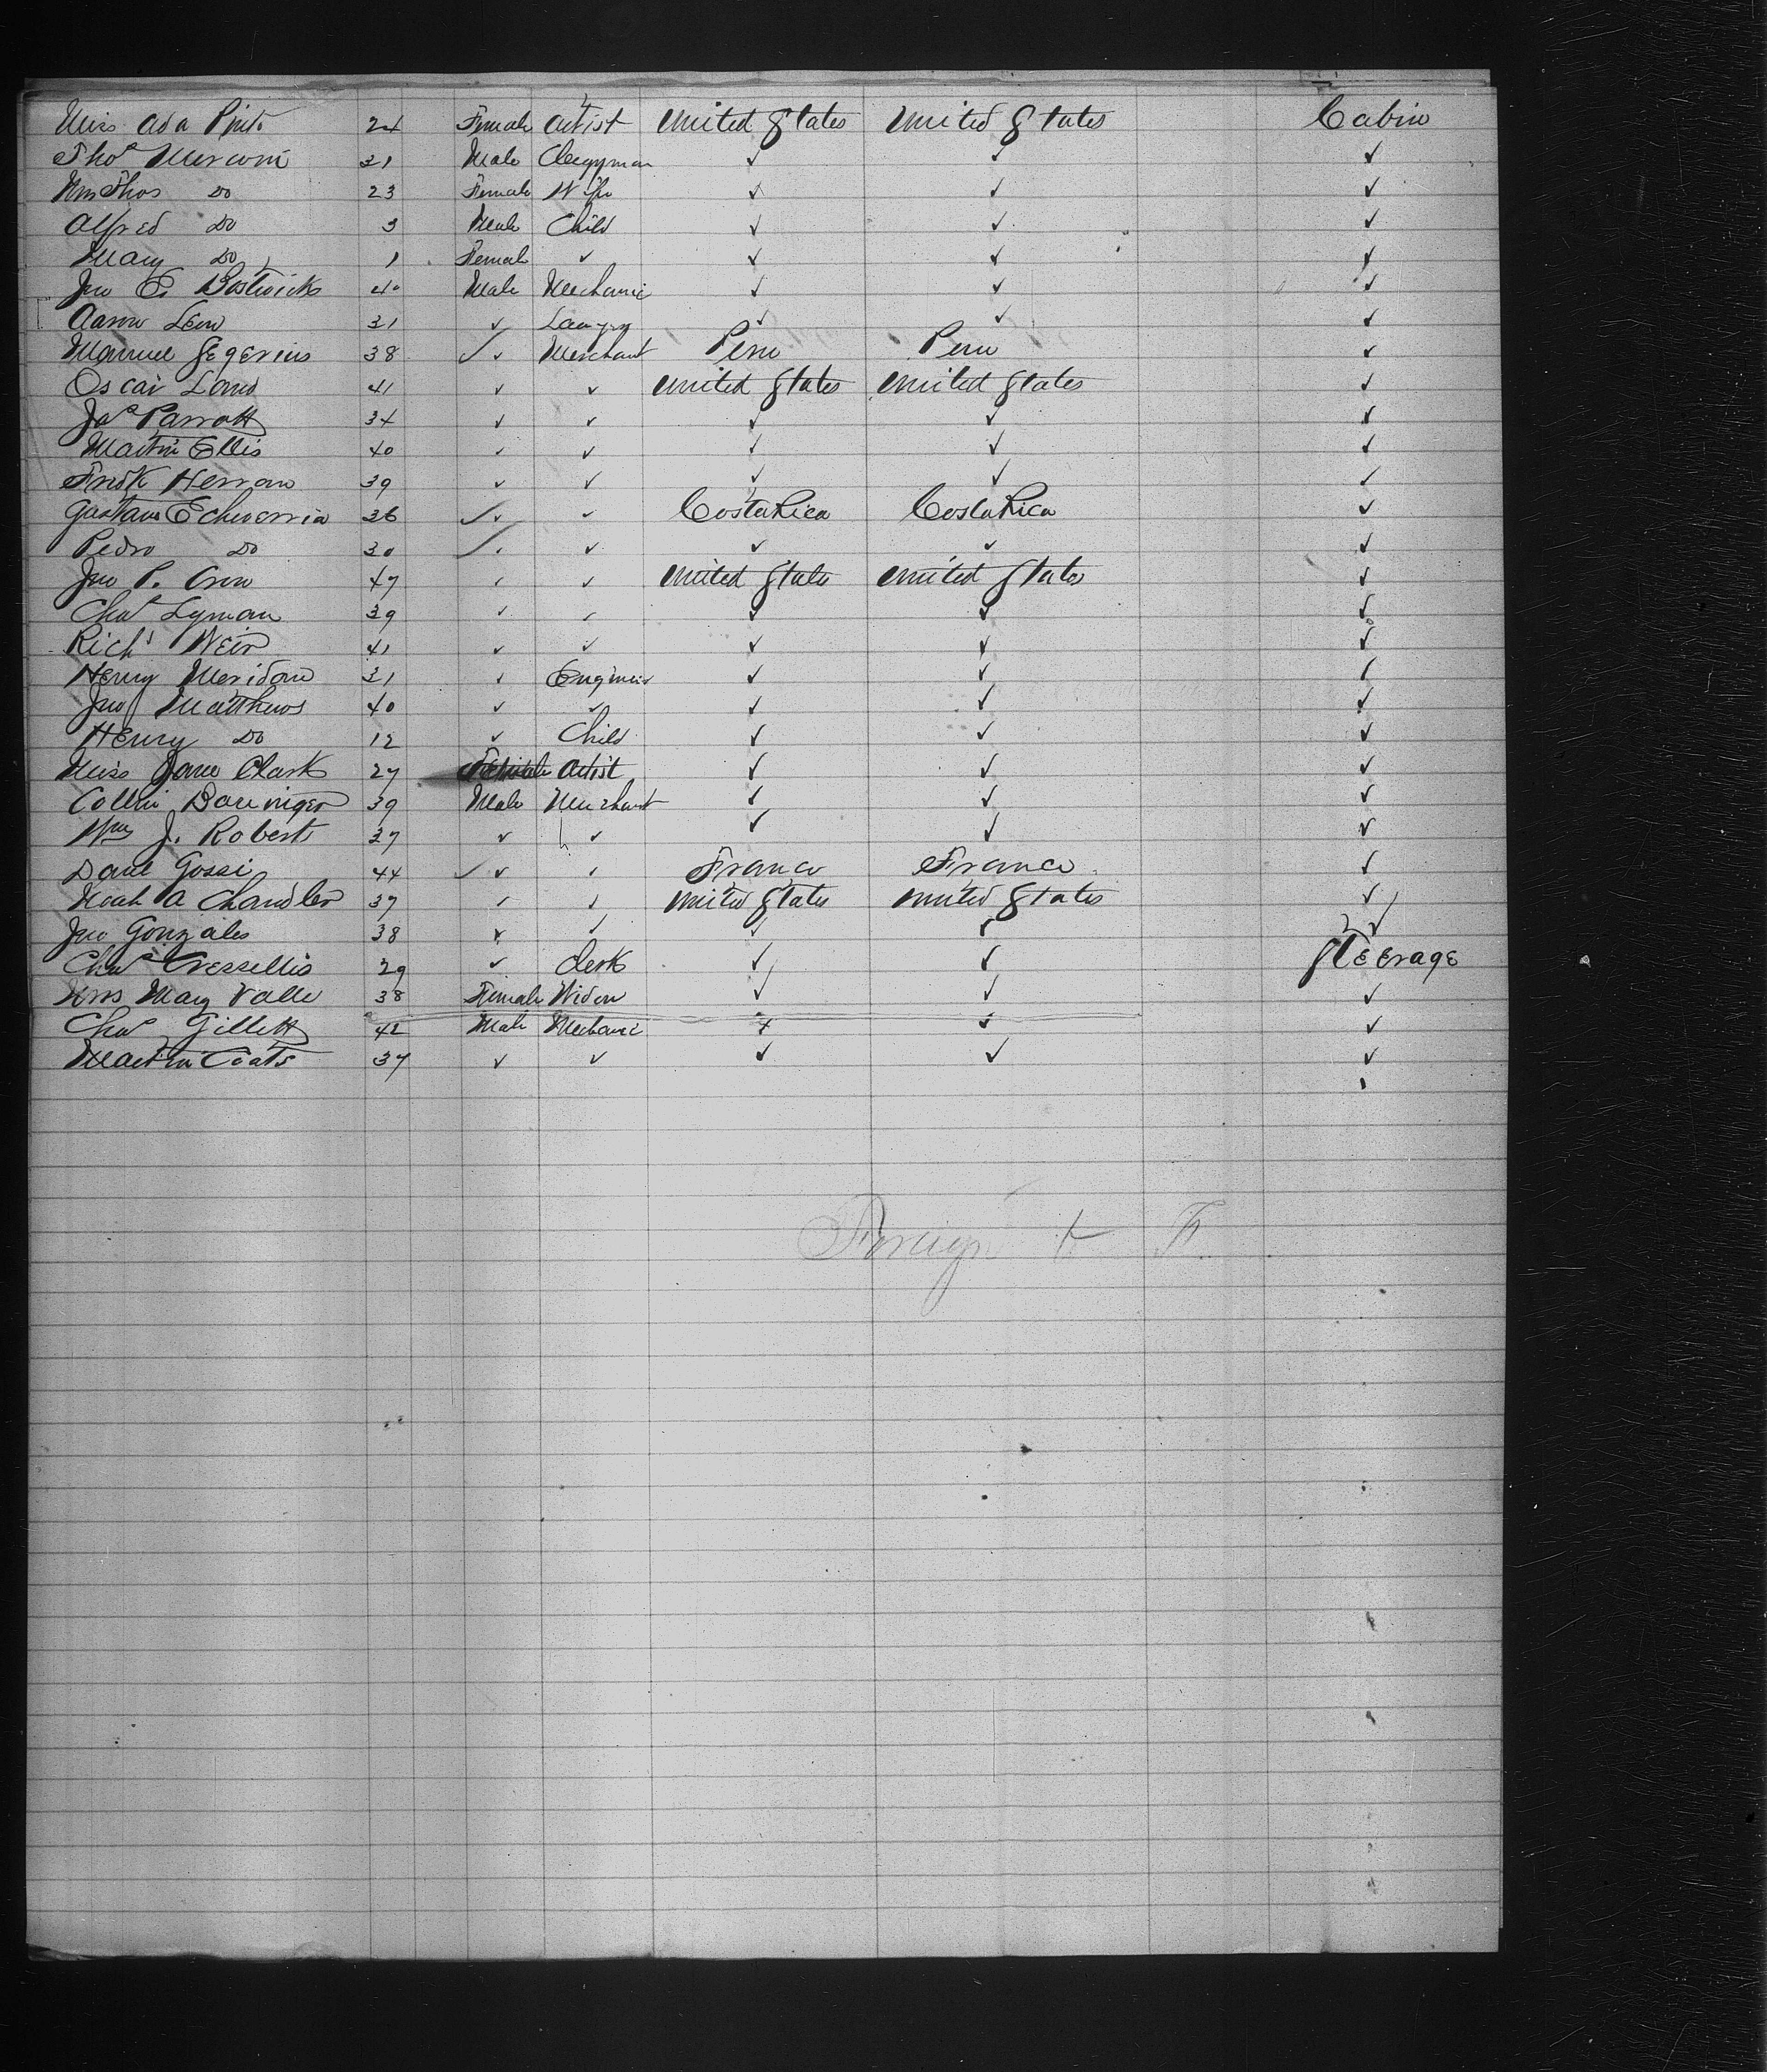 Miss Ada Pinto 24 Female Artist United States United States Cabin
Thos 31 Male Clergyman ✓ ✓ ✓
Mrs Thos Do 23 Female Wife ✓ ✓ ✓
Alfred Do 3 Male Child ✓ ✓ ✓
Mary Do 1 Female ✓ ✓ ✓ ✓
Jno E. Bostwick 40 Male Mechanic ✓ ✓ ✓
Aaron Leon 31 ✓ ✓ ✓ ✓
Manuel 38 ✓ Merchant Peru Peru ✓
Oscar 41 ✓ ✓ United States United States ✓
Jas Parrott 34 ✓ ✓ ✓ ✓ ✓
Martin Ellis 40 ✓ ✓ ✓ ✓ ✓
Fredk Herran 39 ✓ ✓ ✓ ✓ ✓
Gustave Echeverria 36 ✓ ✓ Costa Rica Costa Rica ✓
Pedro Do 30 ✓ ✓ ✓ ✓ ✓
Jno P. 47 ✓ ✓ United States United States ✓
Chas Lyman 39 ✓ ✓ ✓ ✓ ✓
Richd Weir 41 ✓ ✓ ✓ ✓ ✓
Henry 31 ✓ Engineer ✓ ✓ ✓
Jno Matthews 40 ✓ ✓ ✓ ✓ ✓
Henry Do 12 ✓ Child ✓ ✓ ✓
Miss Jane Clark 27 Female Artist ✓ ✓ ✓
Collin Bareniger 39 Male Merchant ✓ ✓ ✓
Wm J. Roberts 37 ✓ ✓ ✓ ✓ ✓
Danl Gossi 44 ✓ ✓ France France ✓
Noah A Chandler 37 ✓ ✓ United States United States ✓
Jno Gonzales 38 ✓ ✓ ✓ ✓ ✓
Chas 29 ✓ Clerk ✓ ✓ Steerage
Mrs Mary Valle 38 Female Widow ✓ ✓ ✓
Chas Gillett 42 Male Mechanic ✓ ✓ ✓
Martin Coats 37 ✓ ✓ ✓ ✓ ✓
Foreign